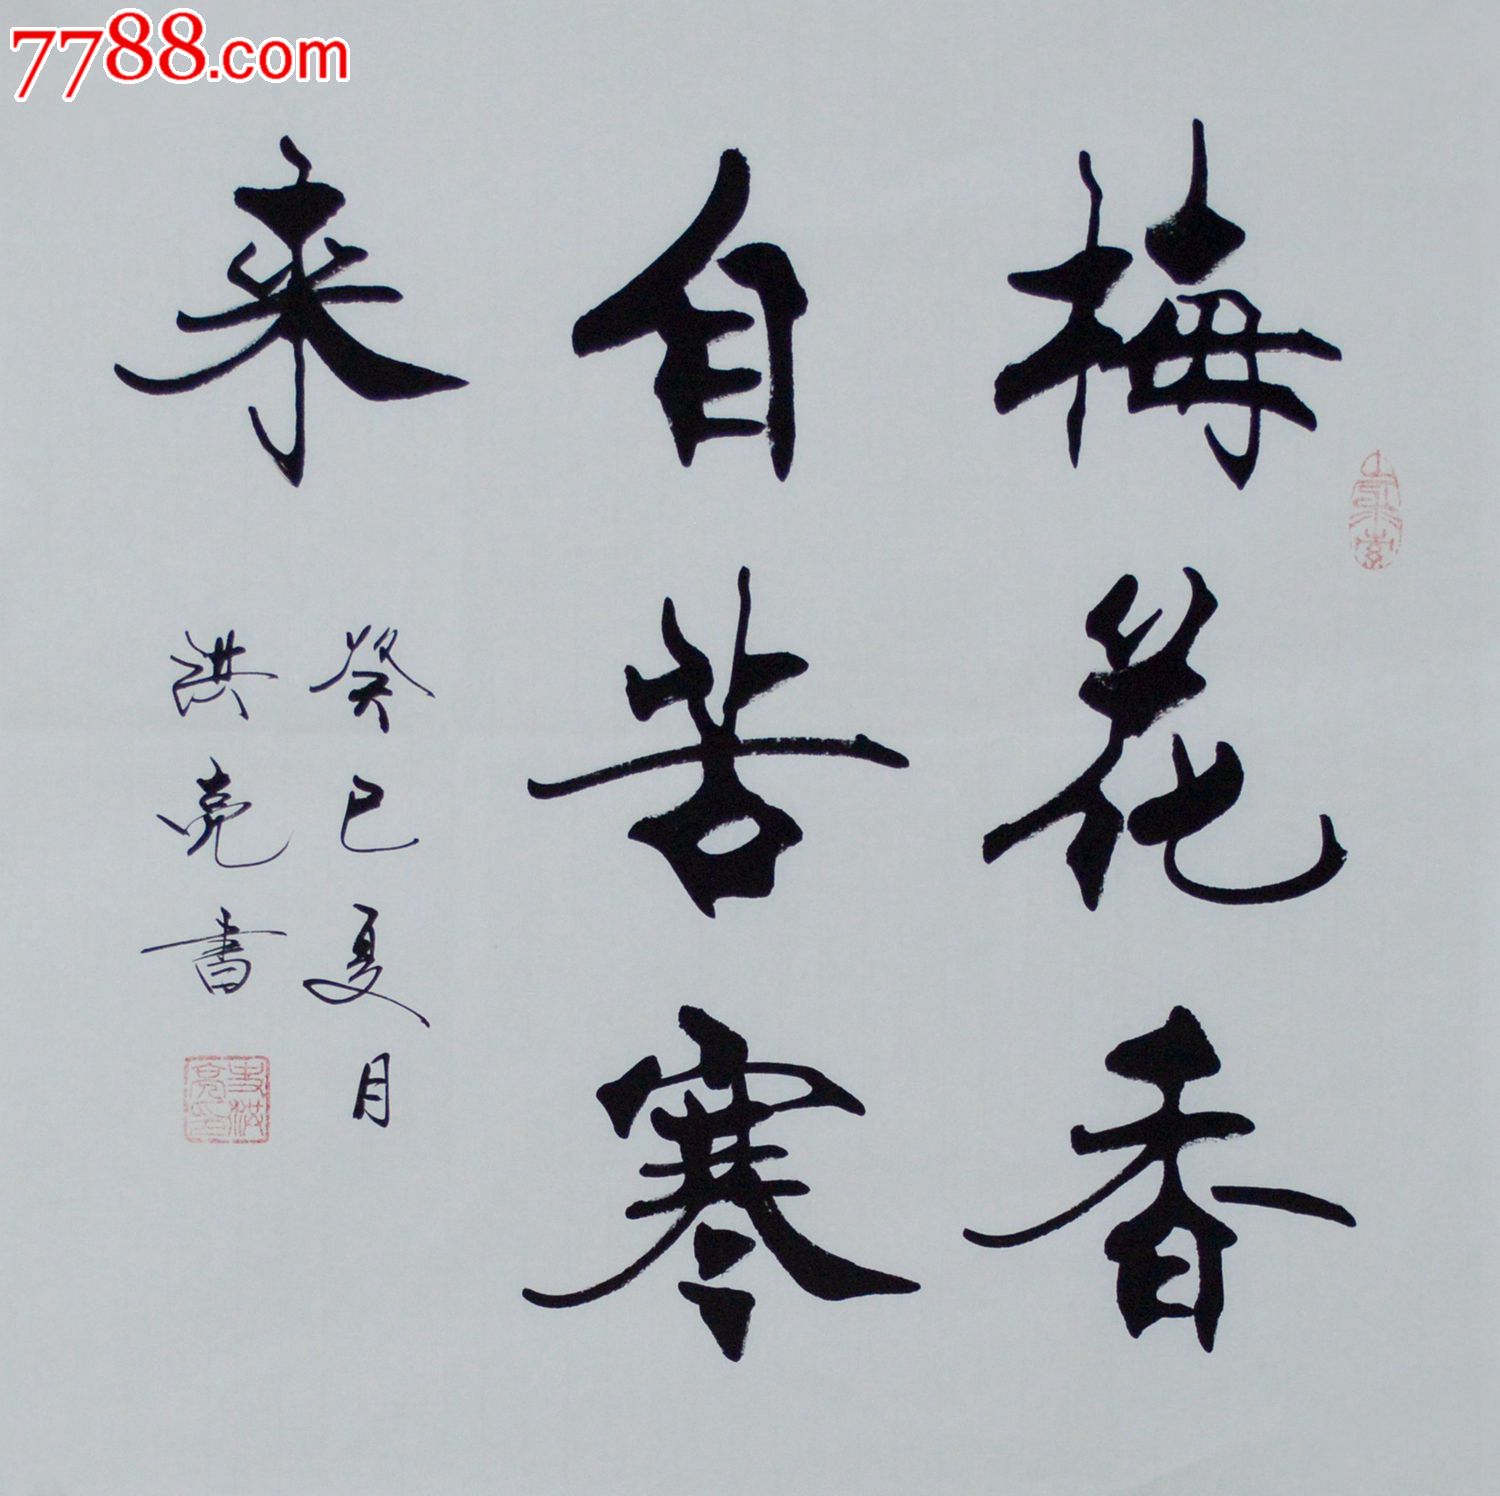 7788.com
梅花香
自苦寒
来
癸巳夏月
洪亮书